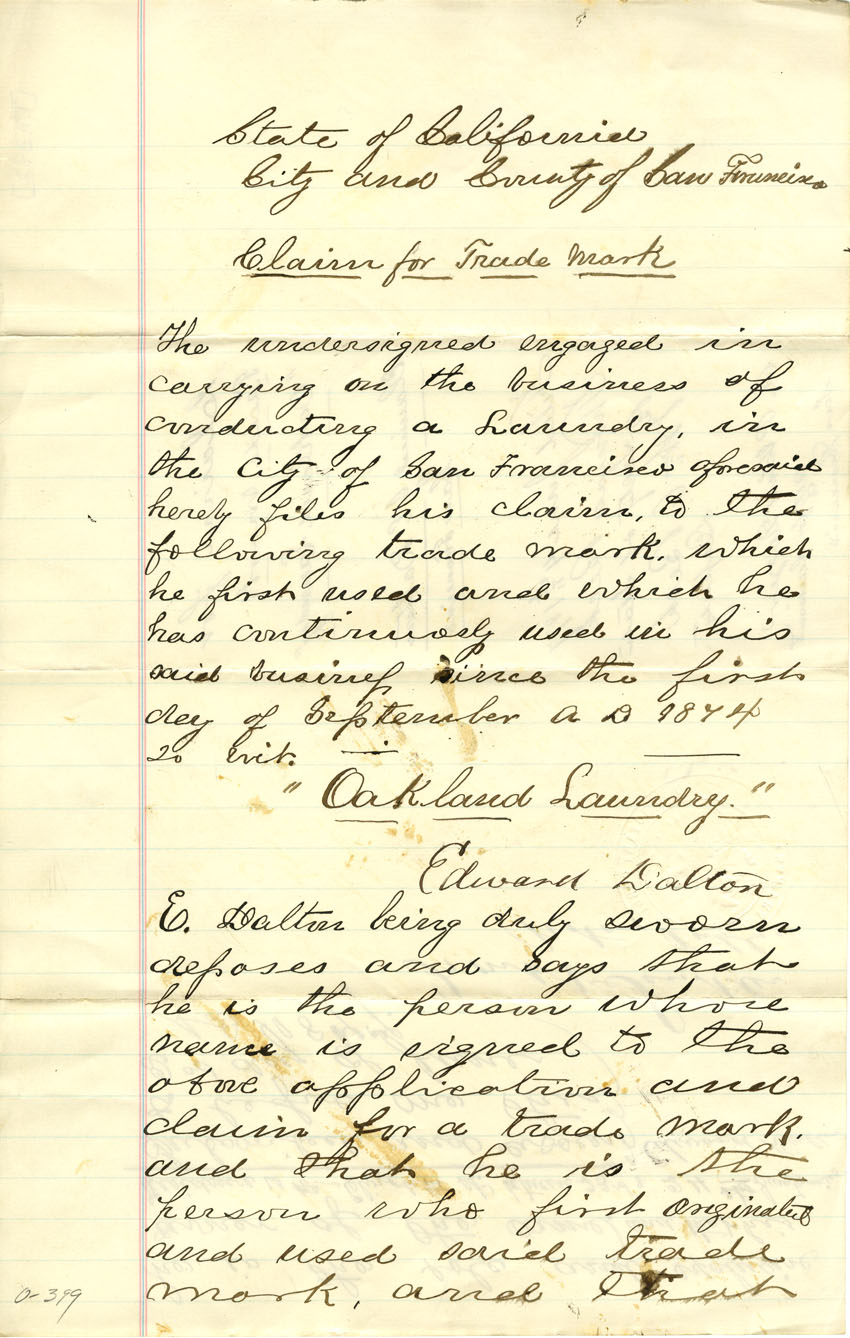 State of California
City and County of San Francisco
Claim for Trade Mark
The undersigned engaged in
carrying on the business of
conducting a Laundry, in
the City of San Francisco aforesaid
hereby files his claim, to the
following trade mark. which
he first used and which he
has continuosly used in his
said business since the first
day of September A D 1874
to wit.
"Oakland Laundry."
Edward Dalton
E. Dalton being duly sworn
deposes and says that
he is the person whose
name is signed to the
above application and
claim for a trade mark.
and that he is the
person who first originated
and used said trade
mark, and that
0-399